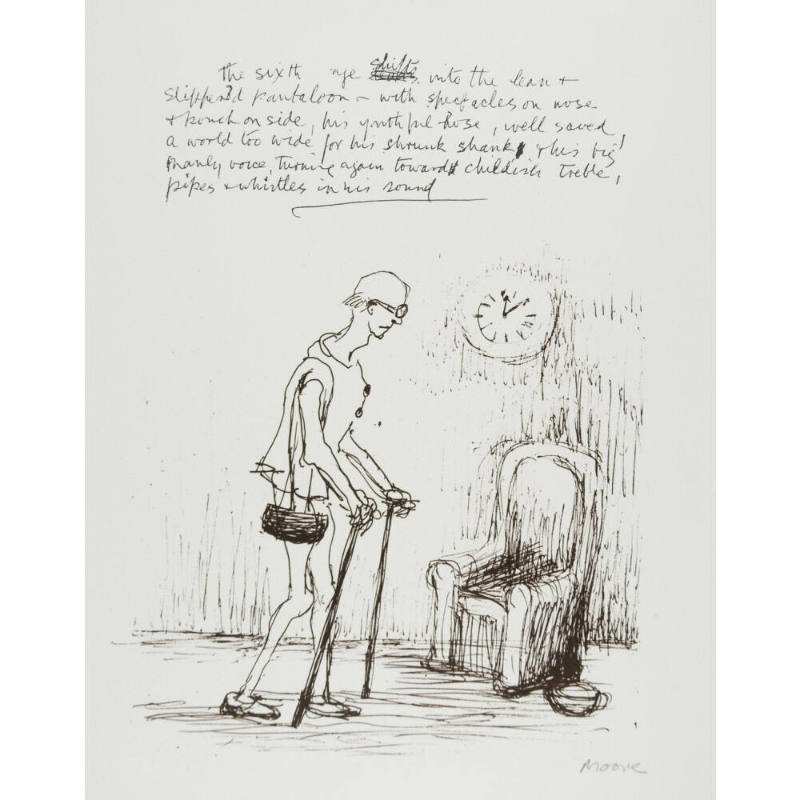 The sixth age shifts into the lean +
slipper'd pantaloon – with spectacles on nose
+ pouch on side, his youthful hose, well saved,
a world too wide for his shrunk shank, + his big
manly voice, turning again towards childish treble,
pipes + whistles in his sound
Moore